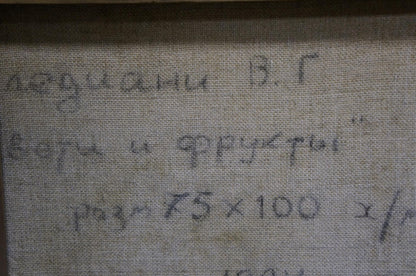 ледиани В.Г
веты и фрукты"
разм 75×100 х/м